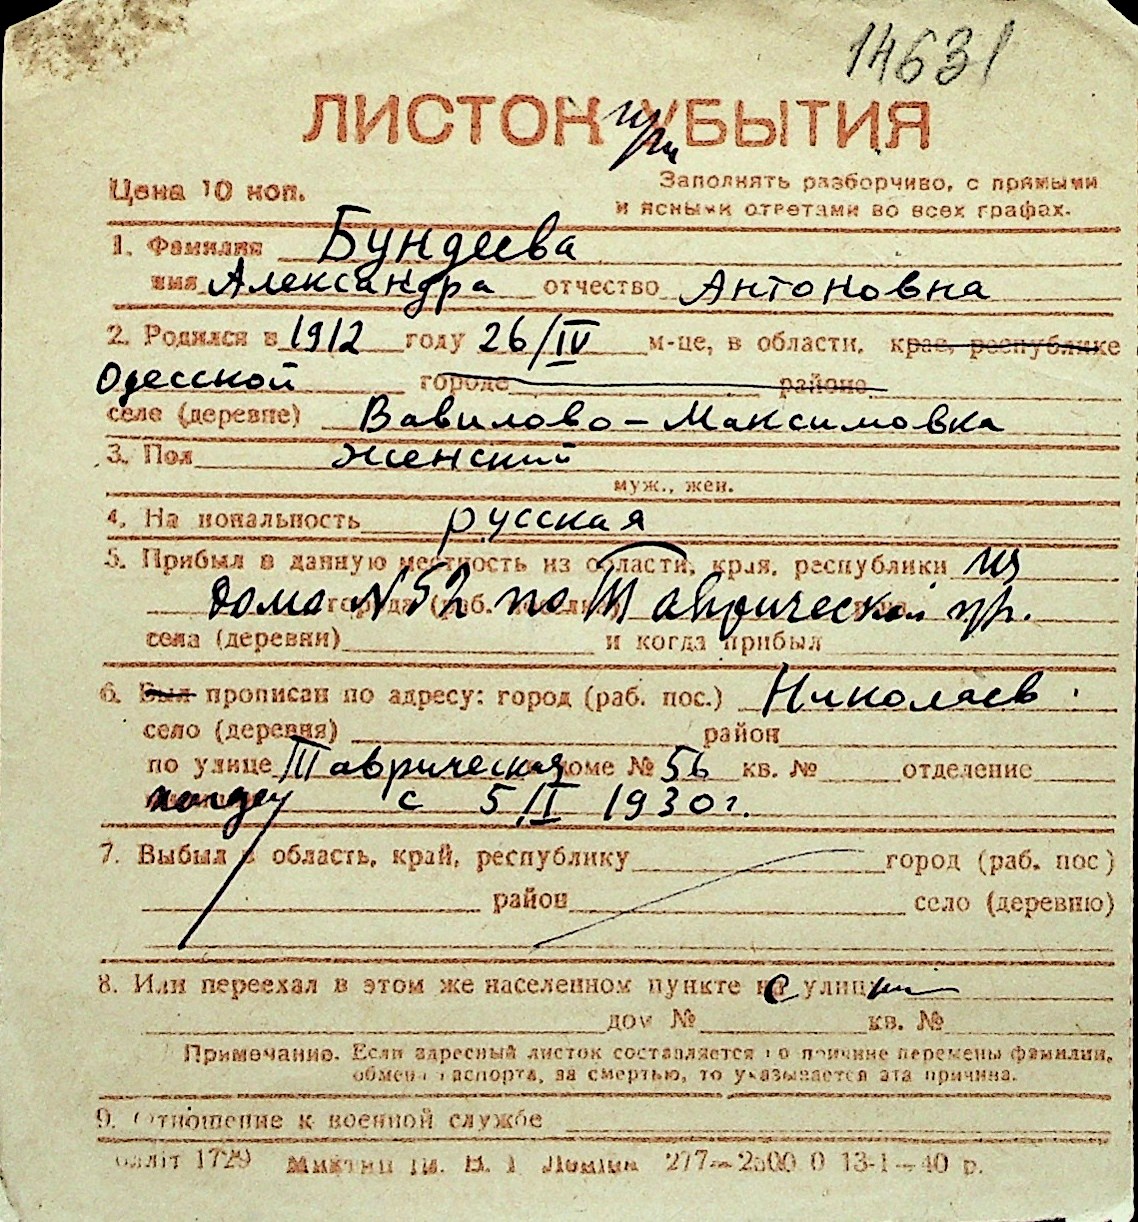 14631
ЛИСТОК при УБЫТИЯ
Цена 10 коп.
Заполнять разборчиво, с прямыми
и ясными ответами во всех графах.
1. Фамилия Бундеева
имя Александра отчество Антоновна
2. Родился в 1912 году 26/IV м-це, в области, крае, республике
Одесской городе районе
селе (деревне) Вавилово-Максимовка
3. Пол женский
муж., жен.
4. Национальность русская
5. Прибыл в данную местность из области, края, республики из
дома N 52 по Таврической
села (деревни) и когда прибыл
6. Был прописан по адресу: город (раб. пос.) Николаев
село (деревня) район
по улице Таврическая доме № 56 кв. № отделение
с 5/I 1930 г.
7. Выбыл в область, край, республику город (раб. пос)
район село (деревню)
8. Или переехал в этом же населенном пункте с улицы
дом № кв. №
Примечание. Если адресный листок составляется по причине перемены фамилии,
обмена паспорта, за смертью, то указывается эта причина.
9. Отношение к военной службе
1729 277—2500 0 13-1—40 р.